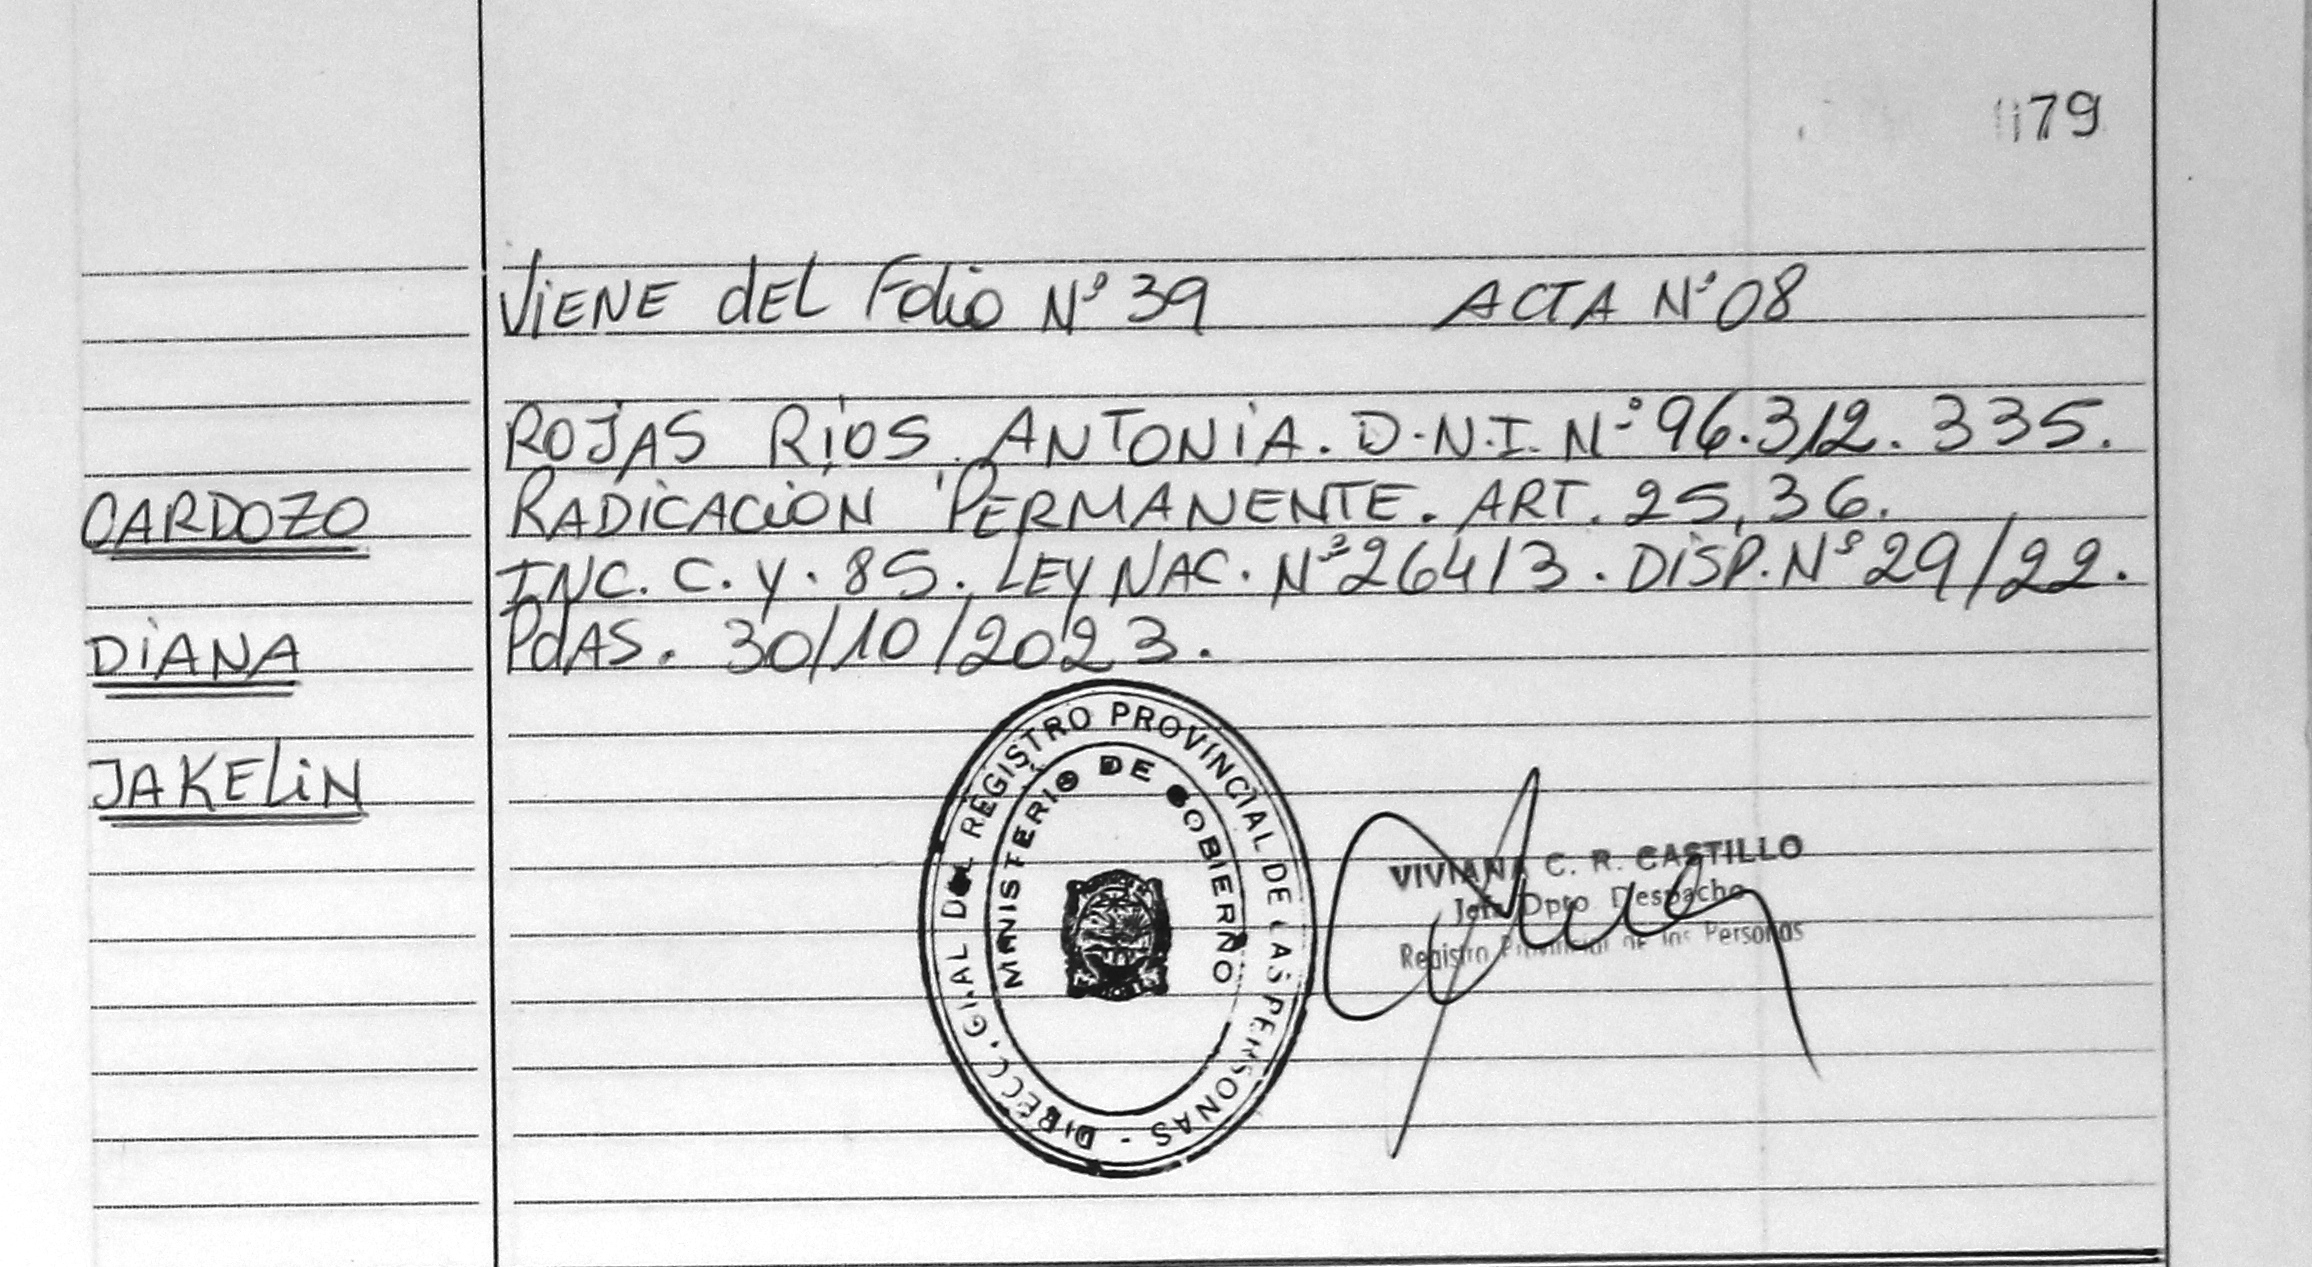 179
VIENE DEL Folio Nº 39 ACTA Nº 08
ROJAS RÍOS ANTONIA. D.N.I. Nº 96.312.335.
CARDOZO
RADICACION PERMANENTE. ART. 25, 36.
INC. C. Y. 85. LEY NAC. Nº 26413. DISP. Nº 29/22.
DIANA
PdAS. 30/10/2023.
JAKELIN
DIRECC. GRAL DEL REGISTRO PROVINCIAL DE LAS PERSONAS -
MINISTERIO DE GOBIERNO
VIVIANA C. R. CASTILLO
Jefa Dpto Despacho
Registro Provincial de las Personas